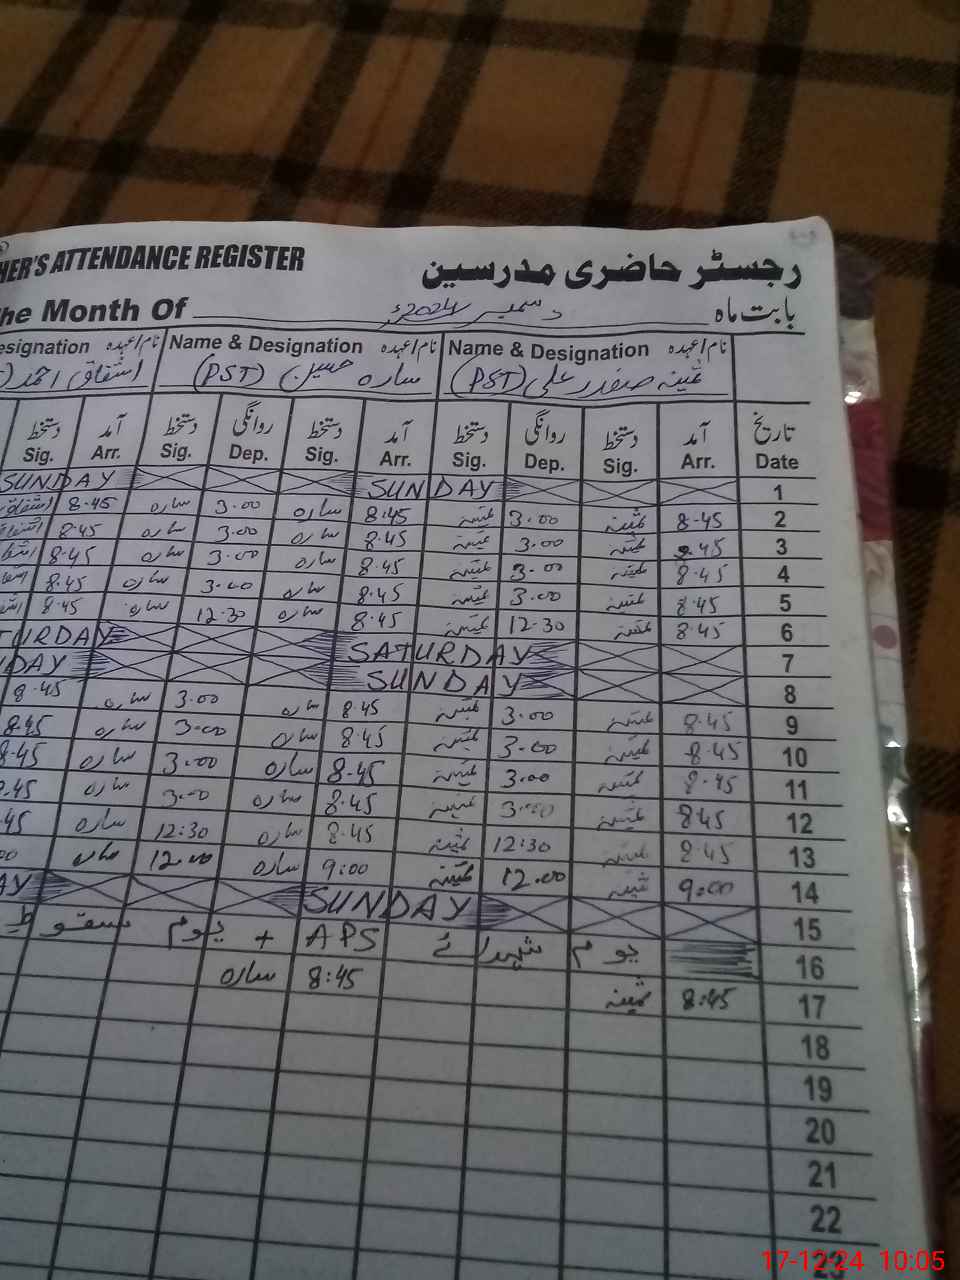 HER'S ATTENDANCE REGISTER رجسٹر حاضری مدرسین
he Month Of دسمبر 2024ء بابت ماہ
esignation نام/عہدہ Name & Designation نام/عہدہ Name & Designation
اشفاق احمد سارہ حسین (PST) ثمینہ صفدر علی (PST)
دستخط آمد دستخط روانگی دستخط آمد دستخط روانگی دستخط آمد تاریخ
Sig. Arr. Sig. Dep. Sig. Arr. Sig. Dep. Sig. Arr. Date
SUNDAY SUNDAY 1
اشفاق 8.45 سارہ 3.00 سارہ 8.45 ثمینہ 3.00 ثمینہ 8-45 2
اشفاق 8.45 سارہ 3.00 سارہ 8.45 ثمینہ 3.00 ثمینہ 8.45 3
8.45 سارہ 3.00 سارہ 8.45 ثمینہ 3.00 ثمینہ 8.45 4
8.45 سارہ 3.00 سارہ 8.45 ثمینہ 3.00 ثمینہ 8.45 5
8.45 سارہ 12.30 سارہ 8.45 ثمینہ 12.30 ثمینہ 8.45 6
TURDAY SATURDAY 7
DAY SUNDAY 8
8.45 سارہ 3.00 سارہ 8.45 ثمینہ 3.00 ثمینہ 8.45 9
8.45 سارہ 3.00 سارہ 8.45 ثمینہ 3.00 ثمینہ 8.45 10
8.45 سارہ 3.00 سارہ 8.45 ثمینہ 3.00 ثمینہ 8.45 11
.45 سارہ 3.00 سارہ 8.45 ثمینہ 3.00 ثمینہ 8.45 12
45 سارہ 12:30 سارہ 8.45 ثمینہ 12:30 ثمینہ 8.45 13
00 سارہ 12.00 سارہ 9:00 ثمینہ 12.00 ثمینہ 9:00 14
AY SUNDAY 15
یوم شہدائے APS + یوم سقوط 16
سارہ 8:45 ثمینہ 8:45 17
18
19
20
21
22
23
17-12-24 10:05